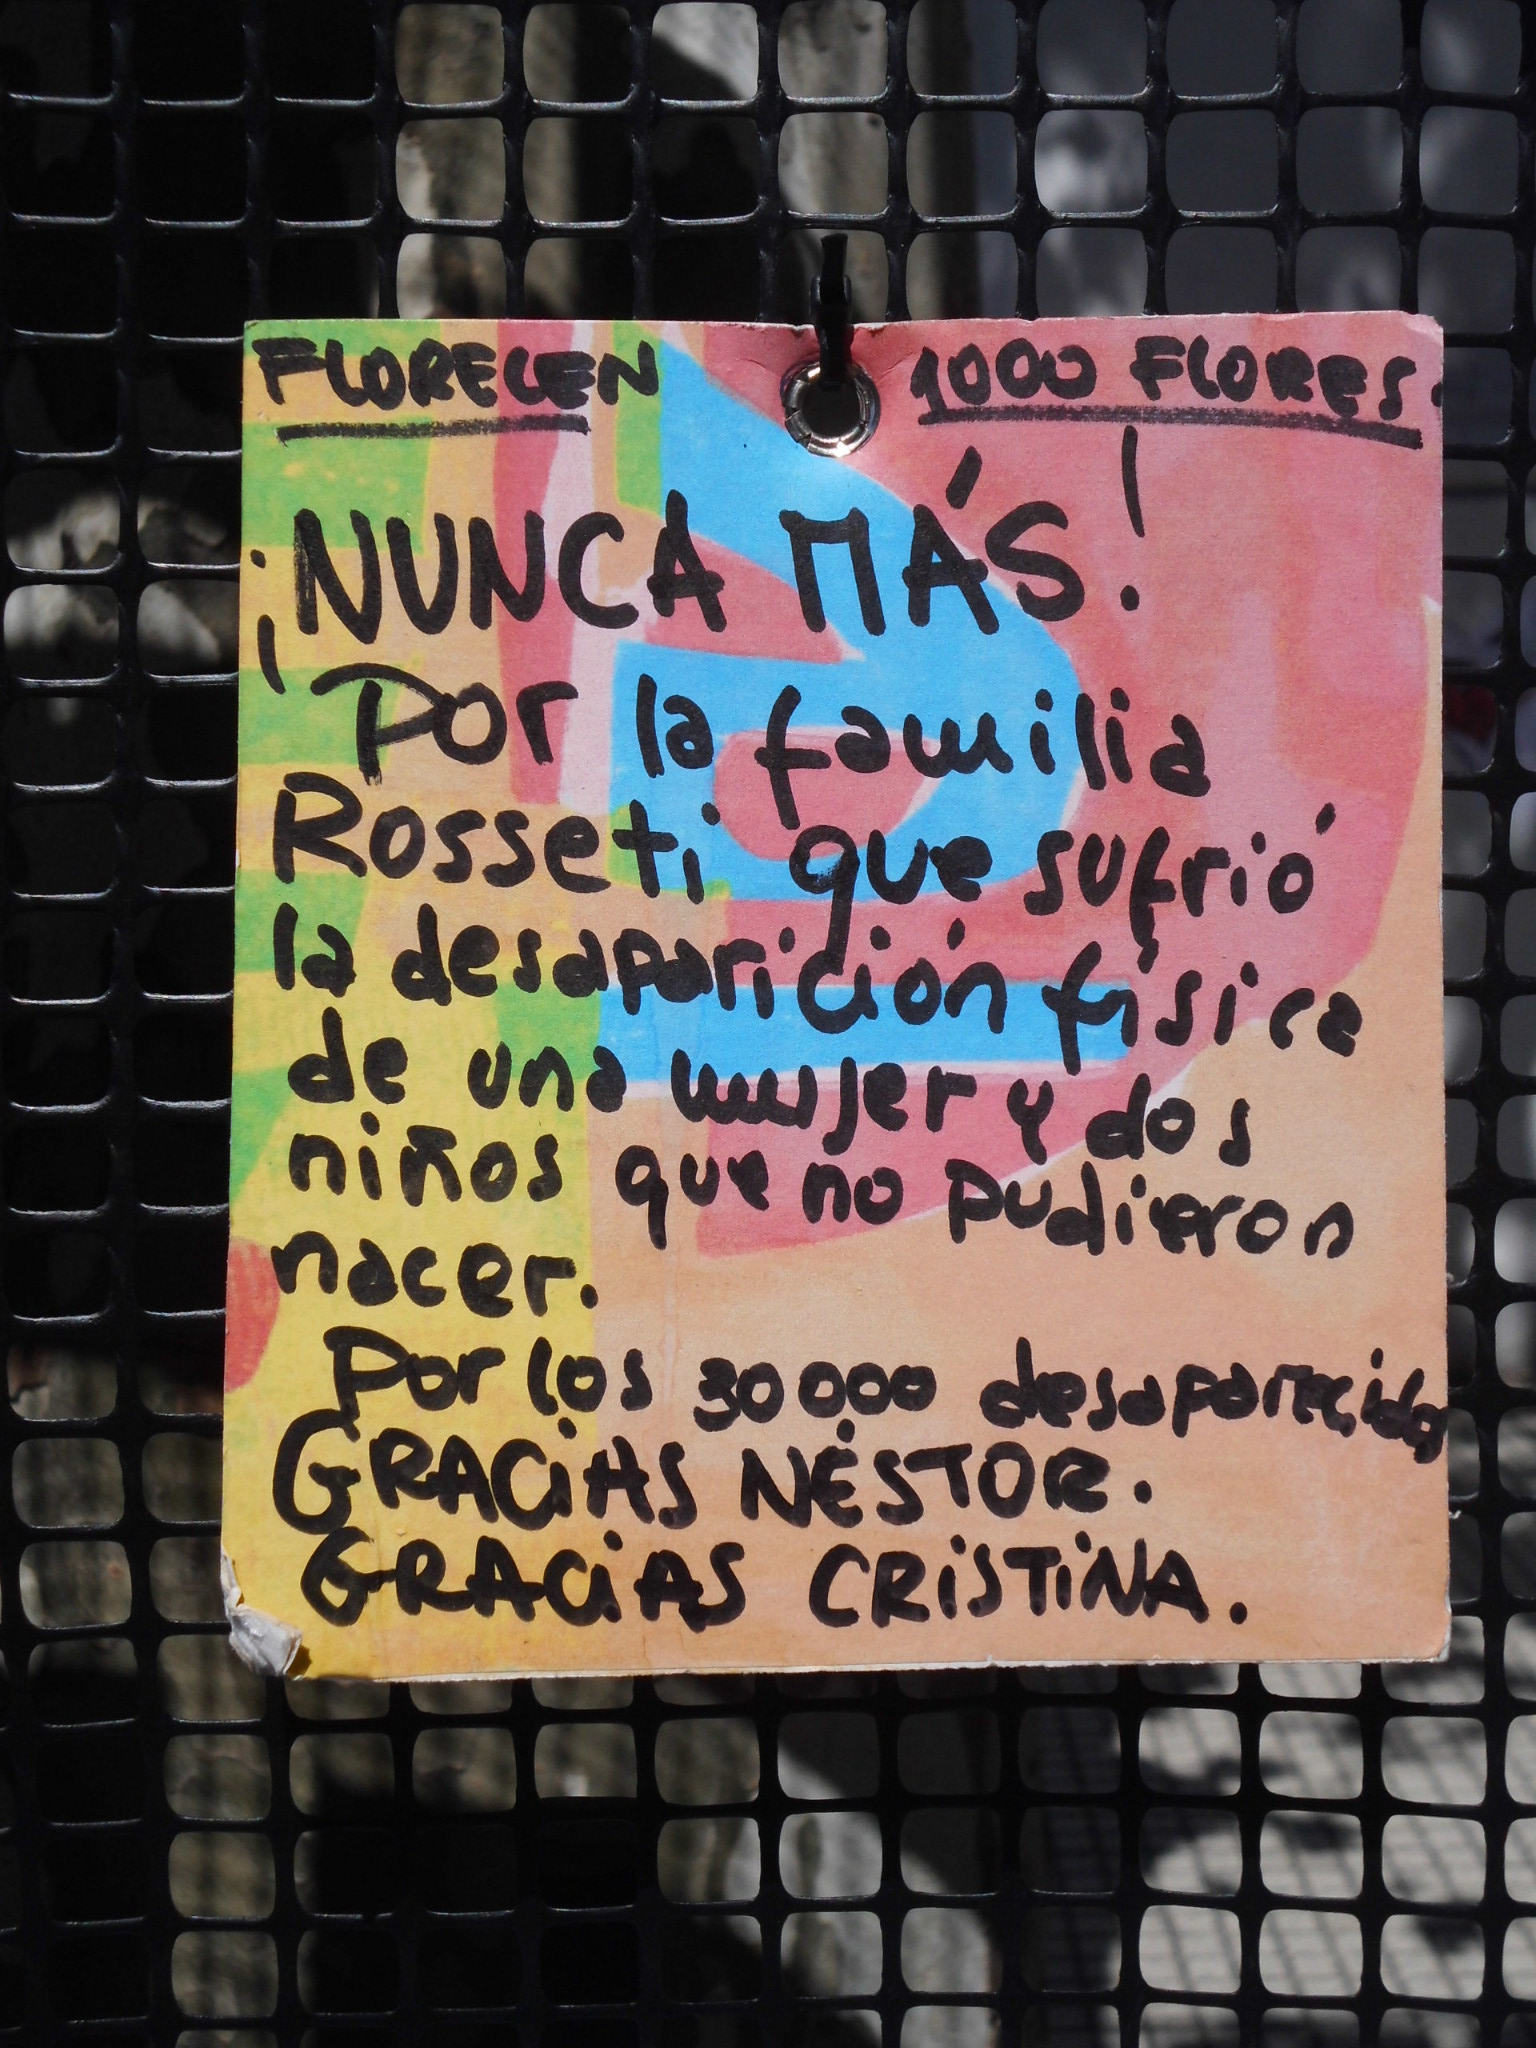 FLORECEN 1000 FLORES.
¡NUNCA MÁS!
Por la familia
Rosseti que sufrió
la desaparición física
de una mujer y dos
niños que no pudieron
nacer.
Por los 30000 desaparecidos
GRACIAS NÉSTOR.
GRACIAS CRISTINA.